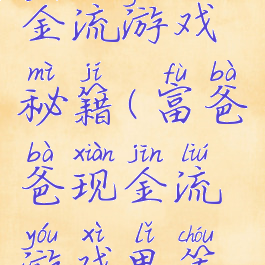 金流游戏
mì jí fù bà
秘籍(富爸
bà xiàn jīn liú
爸现金流
yóu xì lǐ chóu
游戏里筹